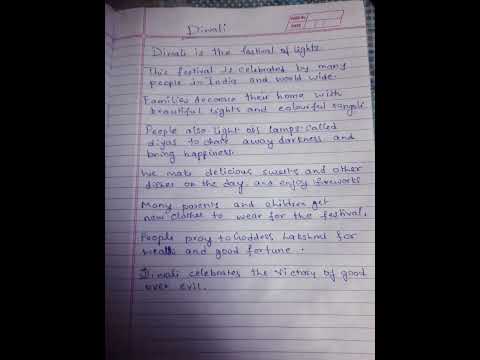 PAGE No.
DATE
Diwali
Diwali is the festival of lights.
This festival is celebrated by many
people in India and world wide.
Families decorate their home with
beautiful lights and colourful rangoli.
People also light oil lamps called
diyas to chase away darkness and
bring happiness.
We make delicious sweets and other
dishes on the day and enjoy fireworks
Many parents and children get
new clothes to wear for the festival.
People pray to Goddess Lakshmi for
and good fortune.
Diwali celebrates the Victory of good
over evil.